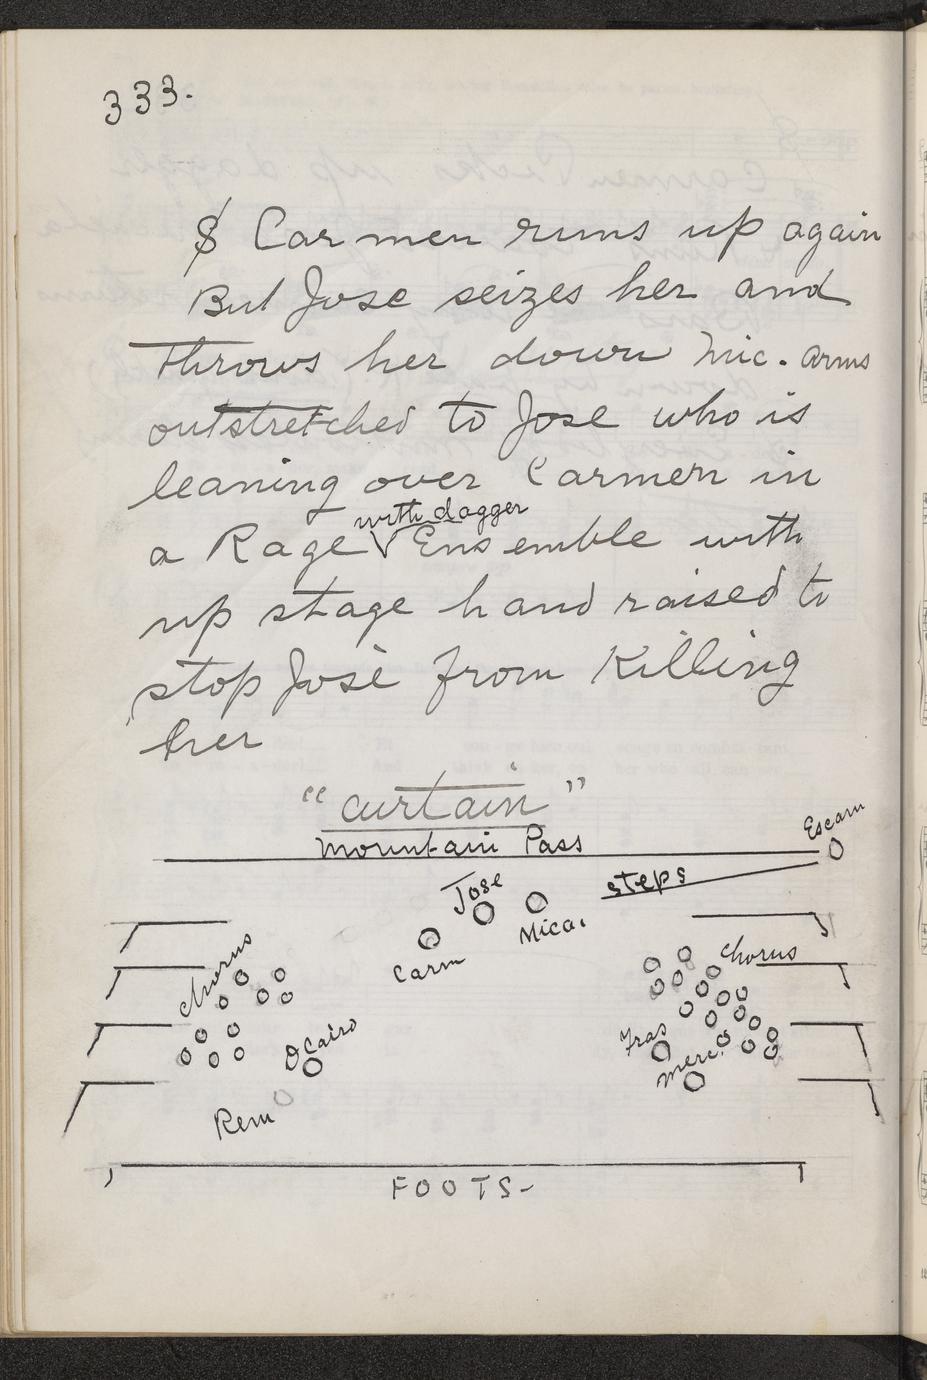 333.
$ Carmen runs up again
But Jose seizes her and
throws her down Mic. arms
outstretched to Jose who is
leaning over Carmen in
with dagger
a Rage V Ensemble with
up stage hand raised to
stop José from Killing
her
"curtain"
Mountain Pass
Escam
steps
Jose
Mica.
Carm
chorus
chorus
Dcairo
Fras
merc.
Rem
FOOTS-